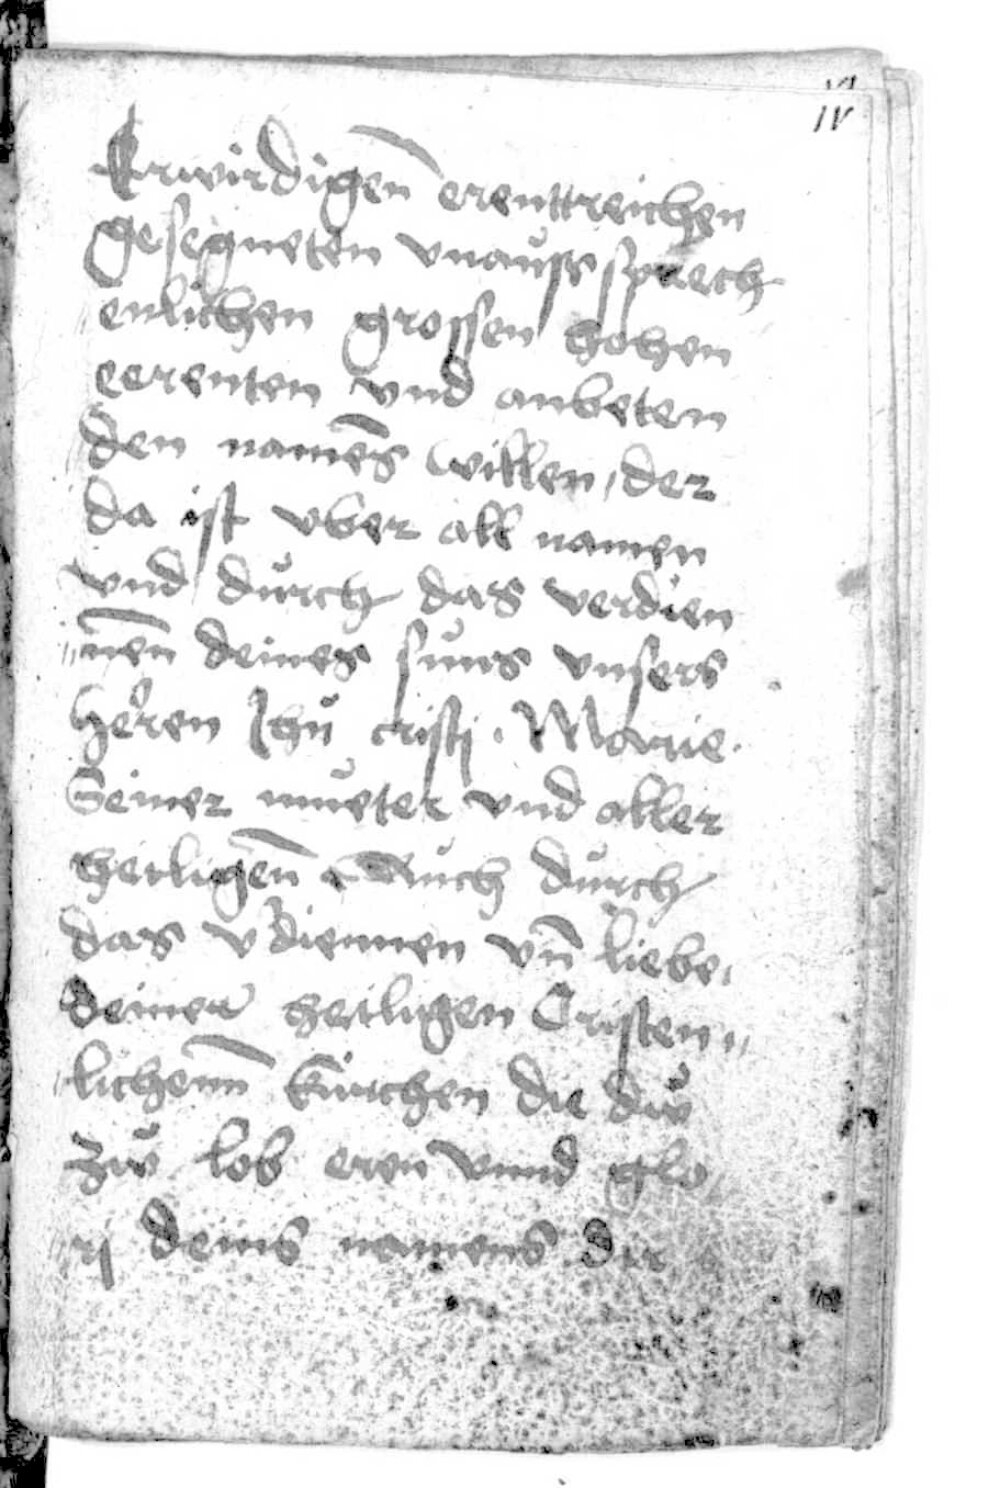 IV
Erwirdigen̅ erenttreichen
gesegneten vnaůssprech
enlichen grossen hohen
eerenten vnd anbeten
den namen̅s willen, der
da ist vber all namen
vnd důrch das verdien
"nen̅ deines sůns vnsers
herren Jhů cristj. Marie.
Seiner můeter vnd aller
heiligen̅ Auch důrch
das v'diennen vn̅ liebe,
deiner heiligen Cristen"
"lichenn̅ kirchen die dẘ
zẘ lob eren vnnd glo,
"rj deins namens dir